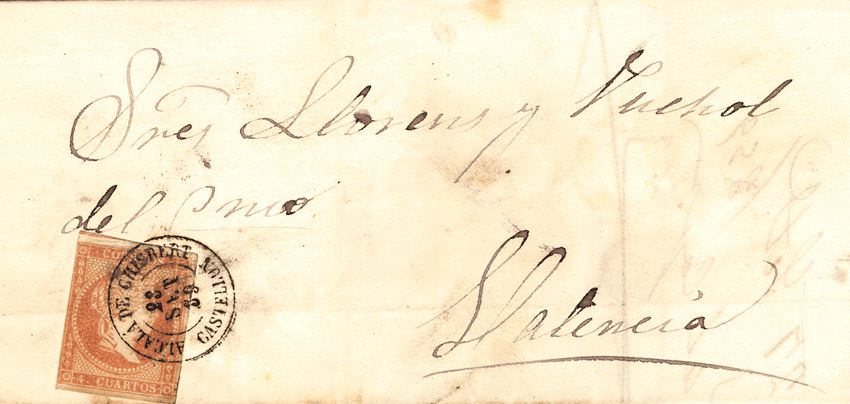 Sres Llorens y Vuchol
del Cmo
Valencia
ALCALÁ DE CHISBERT
CASTELLON
23
4 CUARTOS